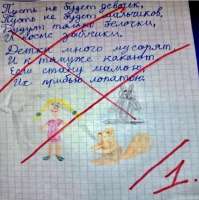 Пусть не будет девочек,
Пусть не будет мальчиков,
Будут только белочки,
И
зайчики.
Детки много мусорят
И к тому же какают
Если стану мамою,
Их прибью лопатою.
1.